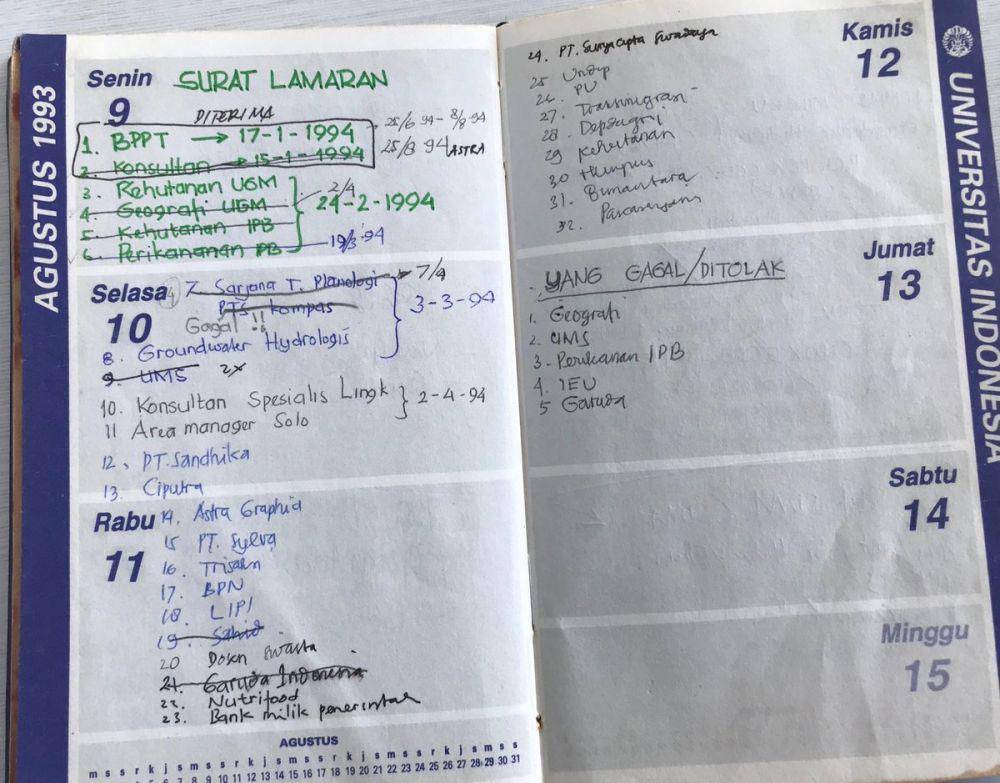 AGUSTUS 1993
Senin
9
SURAT LAMARAN
DITERIMA
1. BPPT → 17-1-1994
25/6 94 - 8/8 94
2. Konsultan → 15-1-1994
25/8 94 ASTRA
3. Kehutanan UGM
4. Geografi UGM
5. Kehutanan IPB
6. Perikananan IPB
2/4
24-2-1994
19/3 '94
Selasa
10
7. Sarjana T. Planologi
7/4
PTS Kompas
Gagal !!
3-3-94
8. Groundwater Hydrologis
9. UMS 2x
10. Konsultan Spesialis Lingk
2-4-94
11 Area manager Solo
12. PT. Sandhika
13. Ciputra
Rabu
11
14. Astra Graphia
15 PT. Sylva
16.
17. BPN
18. LIPI
19. Sahid
20 Dosen swasta
21. Garuda Indonesia
22. Nutrifood
23. Bank milik pemerintah
AGUSTUS
m s s r k j s m s s r k j s m s s r k j s m s s r k j s m s s
8 9 10 11 12 13 14 15 16 17 18 19 20 21 22 23 24 25 26 27 28 29 30 31
Kamis
12
24. PT. Surya Cipta Swadaya
25 Undip
26. PU
27. Transmigrasi
28. Depdagri
29 Kehutanan
30 Humpus
31. Bimantara
32. Pascasarjana
Jumat
13
YANG GAGAL/DITOLAK
1. Geografi
2. UMS
3. Perikanan IPB
4. IEU
5 Garuda
Sabtu
14
Minggu
15
UNIVERSITAS INDONESIA